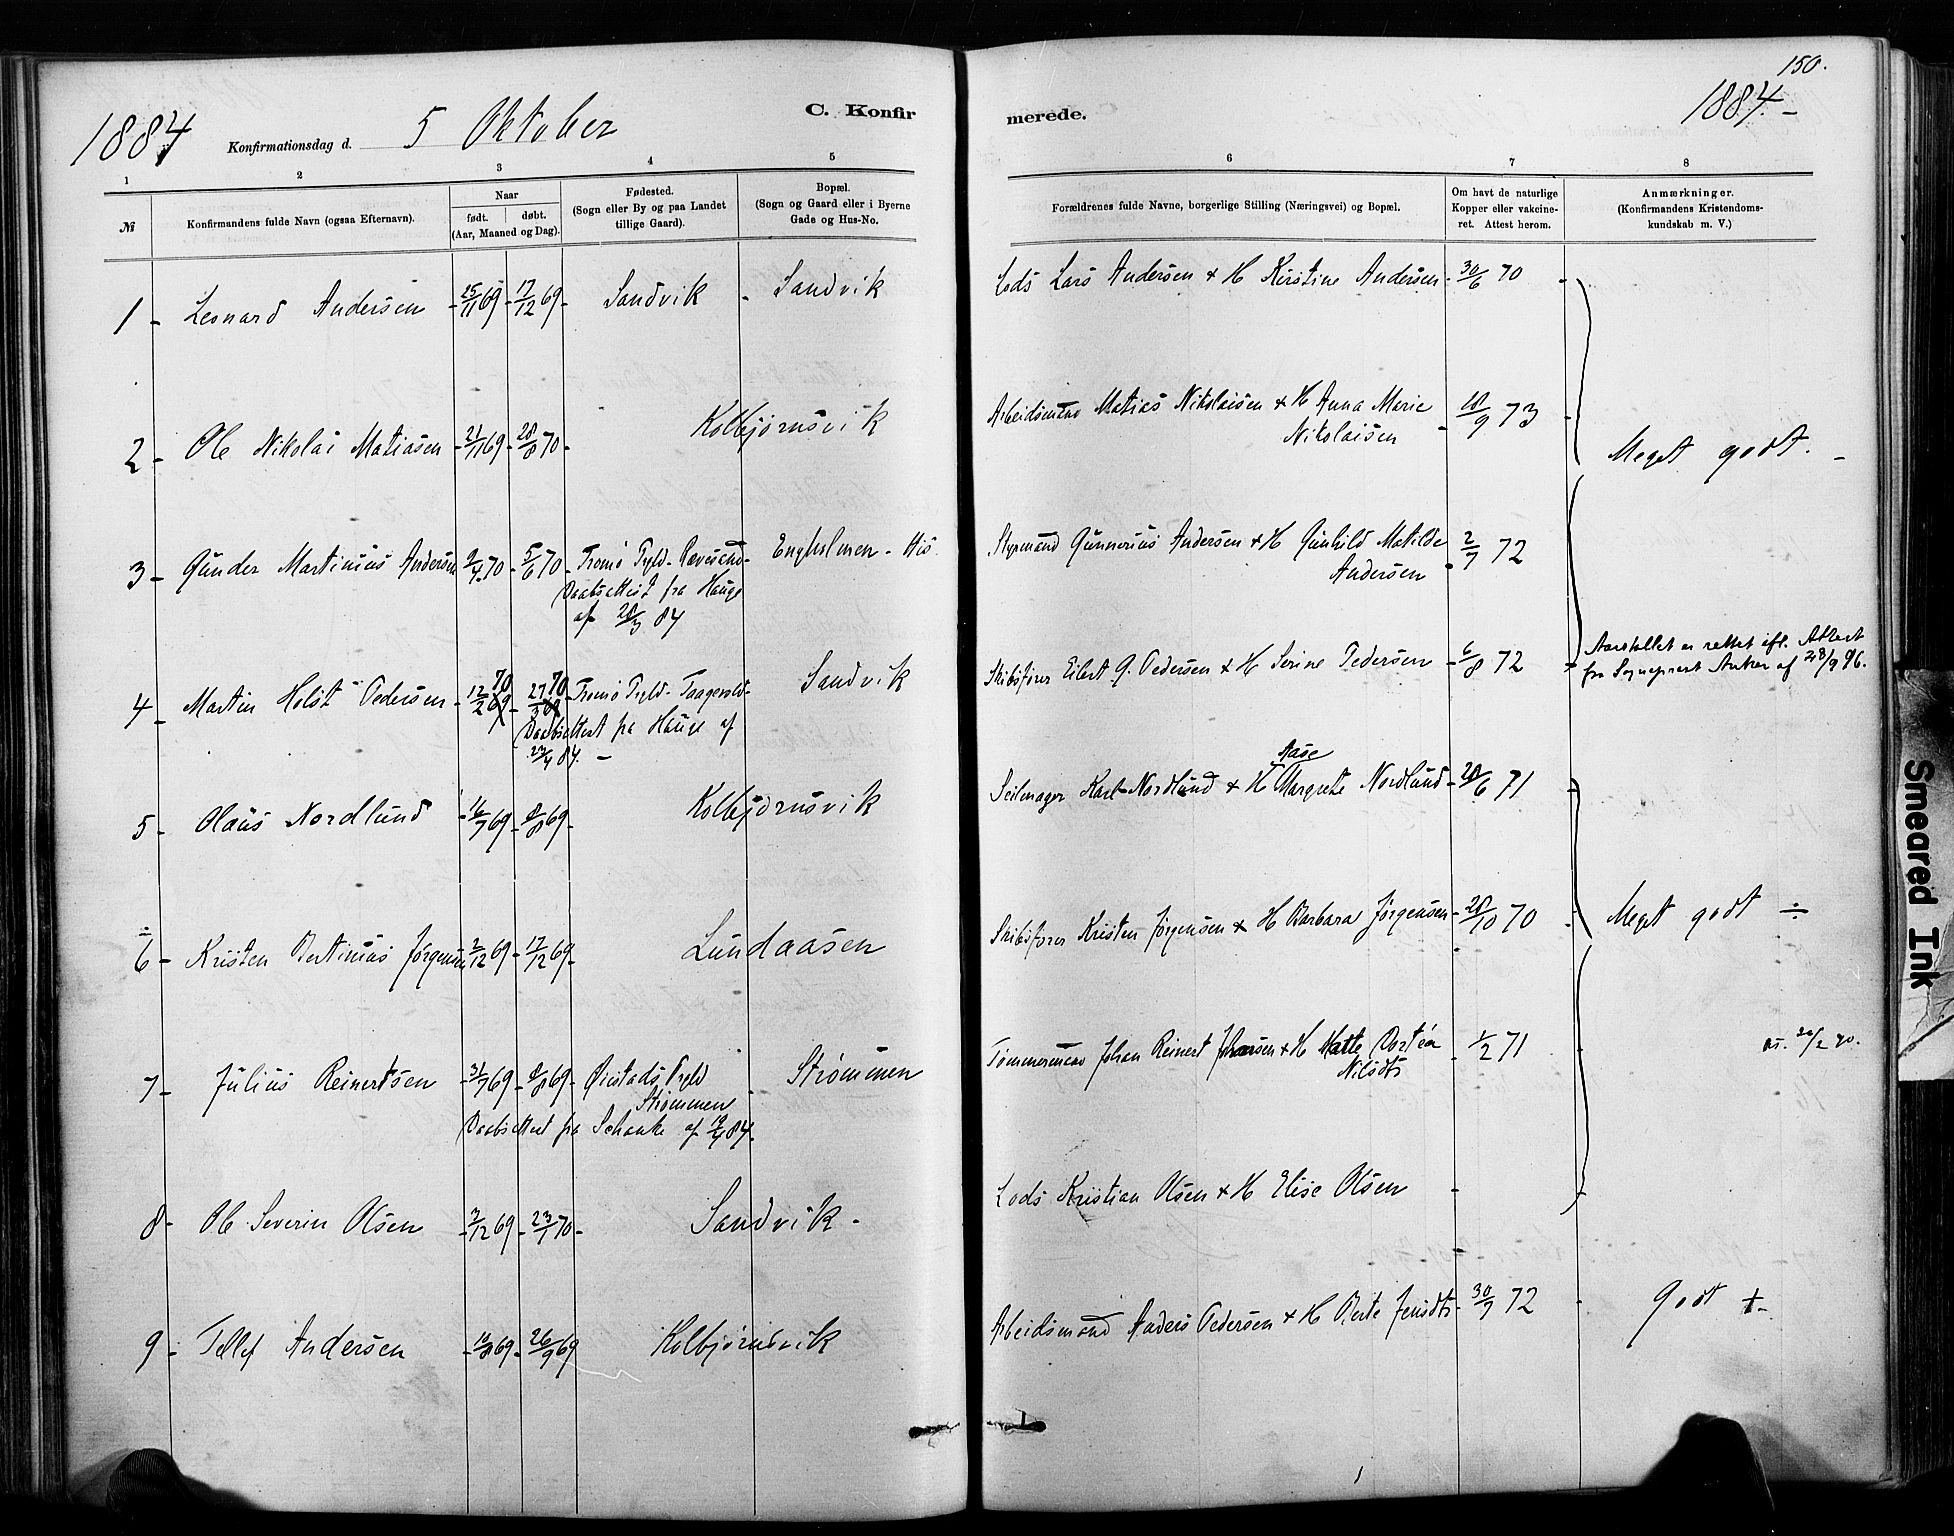 150.
1884 Konfirmationsdag d. 5 Oktober C. Konfir
merede. 1884.-
1 2 3 4 5
6 7 8
№
Konfirmandens fulde Navn (ogsaa Efternavn).
Naar
født. døbt.
(Aar, Maaned og Dag).
Fødested.
(Sogn eller By og paa Landet
tillige Gaard).
Bopæl.
(Sogn og Gaard eller i Byerne
Gade og Hus-No.
Forældrenes fulde Navne, borgerlige Stilling (Næringsvei) og Bopæl.
Om havt de naturlige
Kopper eller vakcine-
ret. Attest herom.
Anmærkninger.
(Konfirmandens Kristendoms-
kundskab m. V.)
1 - Leonard Andersen - 25/11 69 - 17/12 69 - Sandvik - Sandvik
Lods Lars Andersen + H Kirstine Andersen - 30/6 70
2 - Ole Nikolai Matiasen - 21/11 69 - 28/8 70 - Kolbjørnsvik
Arbeidsmand Matias Nikolaisen + H Anna Marie
Nikolaisen - 18/9 73
Meget godt. -
3 - Gunder Martinius Andersen 9/4 70 - 5/6 70 - Tromø Pgld. Revesand - Engholmen - His
Daabsattest fra Hauge
af 28/3 84
Styrmand Gunnerius Andersen + H Gunhild Matilde
Andersen 2/7 72
4 - Martin Holst Pedersen - 12/2 69 70 - 27/3 69 70 - Tromø Pgld - Sandvik
Daabsattest fra Hauge af
23/4 84. -
Skibsfører Eilert G. Pedersen + H Serine Pedersen - 6/8 72
Aarstallet er rettet ifl. Attest
fra Sognepræst Anker af 28/9 96.
5 - Olaus Nordlund - 16/7 69 - 8/8 69 - Kolbjørnsvik
Aase
Seilmager Karl Nordlund + H Margrete Nordlund - 28/6 71
÷
6 - Kristen Bertinius Jørgensen 2/12 69 - 17/12 69 - Lundaasen
Skibsfører Kristen Jørgensen + H Barbara Jørgensen - 28/10 70
Meget godt ÷
7 - Julius Reinertsen - 31/7 69 - 8/8 69 - Øiestads Pgld Strømmen
Strømmen
Daabsattest fra Schanke af 19/4 84.
Tømmermand Johan Reinert Johansen + H Matte Dortea
Nilsdtr - 1/2 71
20/2 90.
8 - Ole Severin Olsen - 3/12 69 - 23/1 70 - Sandvik -
Lods Kristian Olsen + H Elise Olsen -
9 - Tellef Andersen - 19/8 69 - 26/9 69 Kolbjørnsvik
Arbeidsmand Anders Pedersen + H Berte Jensdtr - 30/7 72
godt +-
Smeared Ink